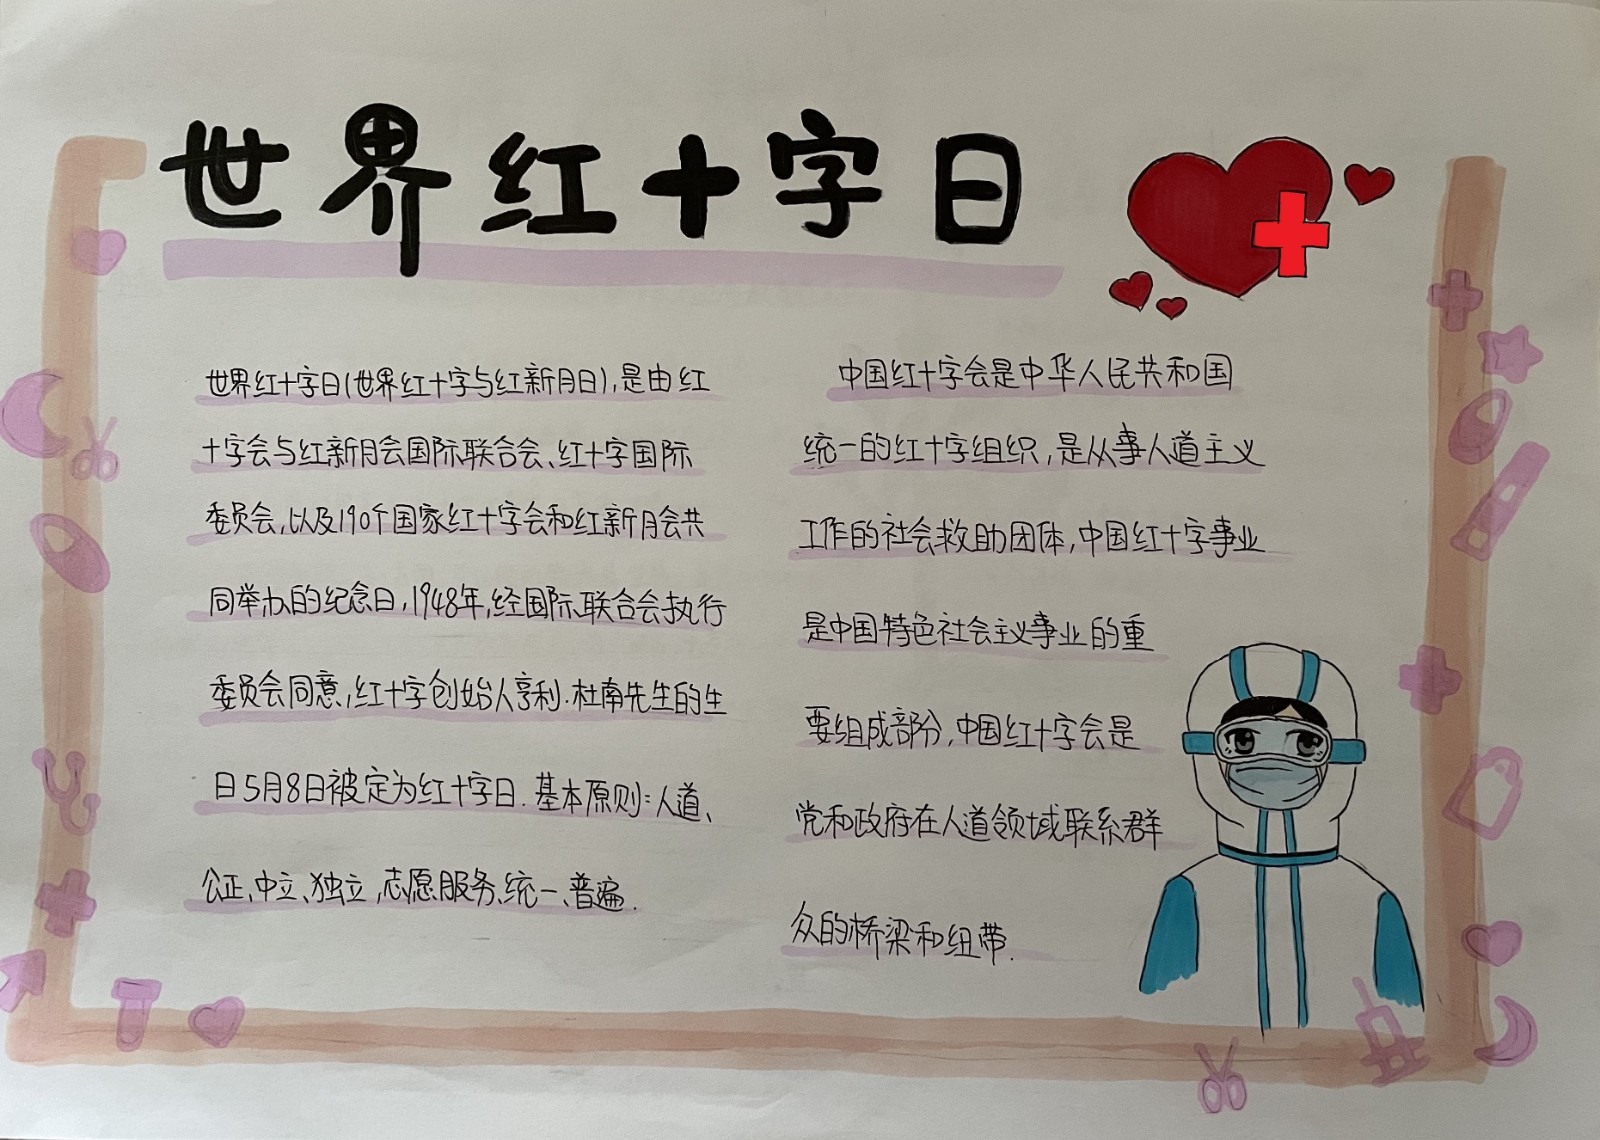 世界红十字日
世界红十字日(世界红十字与红新月日),是由红
十字会与红新月会国际联合会、红十字国际
委员会,以及190个国家红十字会和红新月会共
同举办的纪念日,1948年,经国际联合会执行
委员会同意,红十字创始人亨利.杜南先生的生
日5月8日被定为红十字日.基本原则:人道、
公正、中立、独立,志愿服务、统一、普遍.
中国红十字会是中华人民共和国
统一的红十字组织,是从事人道主义
工作的社会救助团体,中国红十字事业
是中国特色社会主义事业的重
要组成部分,中国红十字会是
党和政府在人道领域联系群
众的桥梁和纽带.